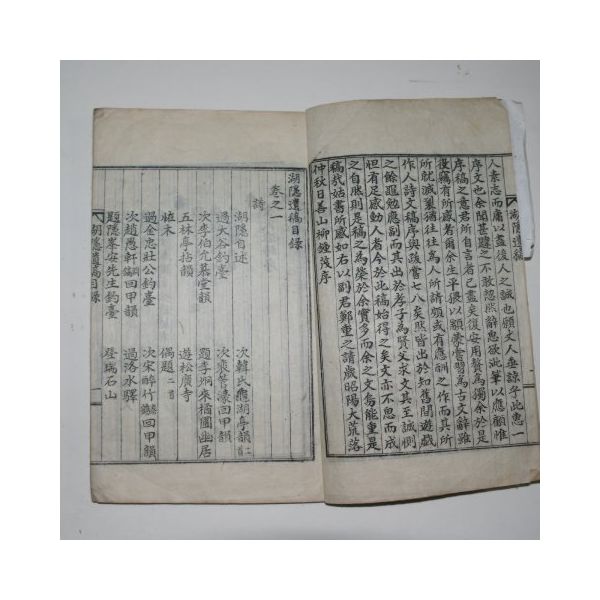 人素志而庸以盡復人之誠也願丈人垂諒乎此惠一
序文也余聞甚韙之不敢忽然辭思欲泚筆以應顧惟
序稿之意君所自言者已盡矣復安用贅爲獨余於是
役竊有所感者爾余生平猥以額蒙嘗習爲古文辭雖
所就滅裂猶往往爲人所請願或有應酬之作而其所
作人詩文稿序與跋嘗七八矣然皆出於知舊間遊戱
之餘强勉應副而其出於孝子爲賢父求文其至誠惻
怛有足感動人者今於此稿始得之矣文亦不思而成
之自然則是稿之爲榮於余實多而余之文焉能重是
稿哉姑書所感如右以副君鄭重之請歲昭陽大荒落
仲秋日善山柳鍾茂序
湖隱遺稿
湖隱遺稿目錄
卷之一
詩
湖隱自述
次韓氏龜湖亭韻二首
過大谷釣臺
次裵菅濠回甲韻
次李伯允慕堂韻
題李炯來楠園幽居
五林亭拈韻
遊松廣寺
植木
偶題二首
過金忠壯公釣臺
次宋醉竹回甲韻
次趙愚軒回甲韻
過洛水驛
題隱峯安先生釣臺
登瑞石山
湖隱遺稿目錄
一